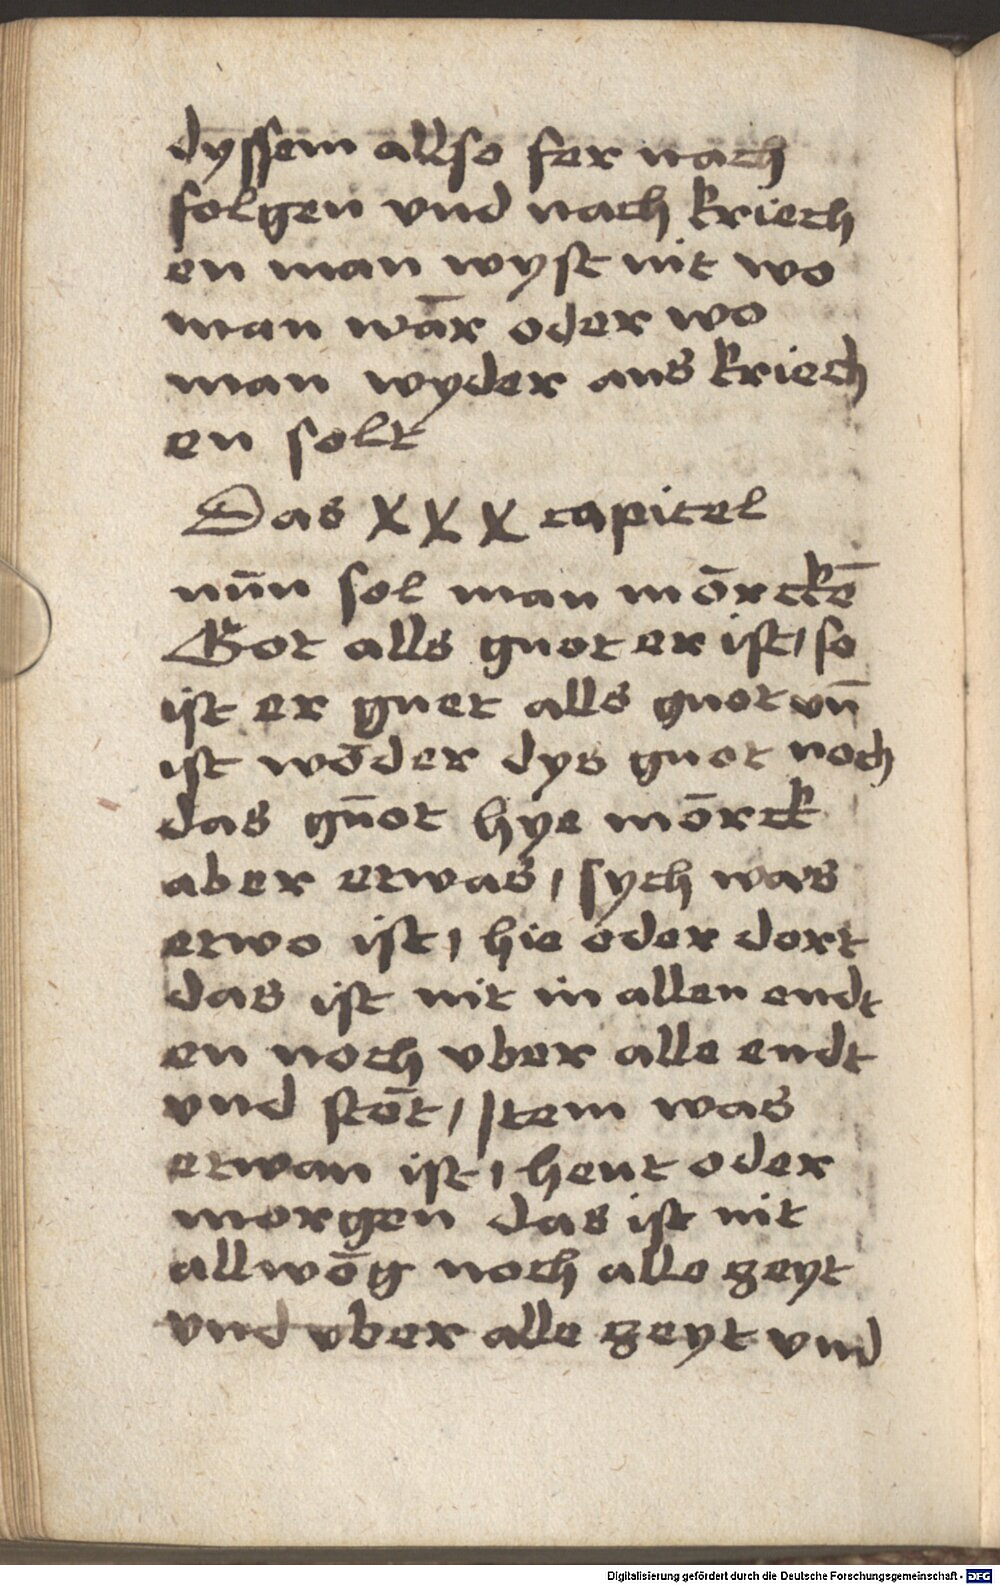 dyssem allso fer nach
folgen vnd nach kriech
en man wyst nit wo
man wār oder wo
man wyder aus kriech
en solt
Das XXX capitel
nūn sol man mōrckē
Got alls guot er ist / so
ist er guet alls guot vn̄
ist wōder dys guot noch
das gūot hye mōrck
aber etwas / sych was
etwo ist / hie oder dort
das ist nit in allen endt
en noch vber alle endt
vnd stōt / Item was
etwan ist / heut oder
morgen das ist nit
allwōg noch alle zeyt
vnd vber alle zeyt vnd
Digitalisierung gefördert durch die Deutsche Forschungsgemeinschaft - DFG